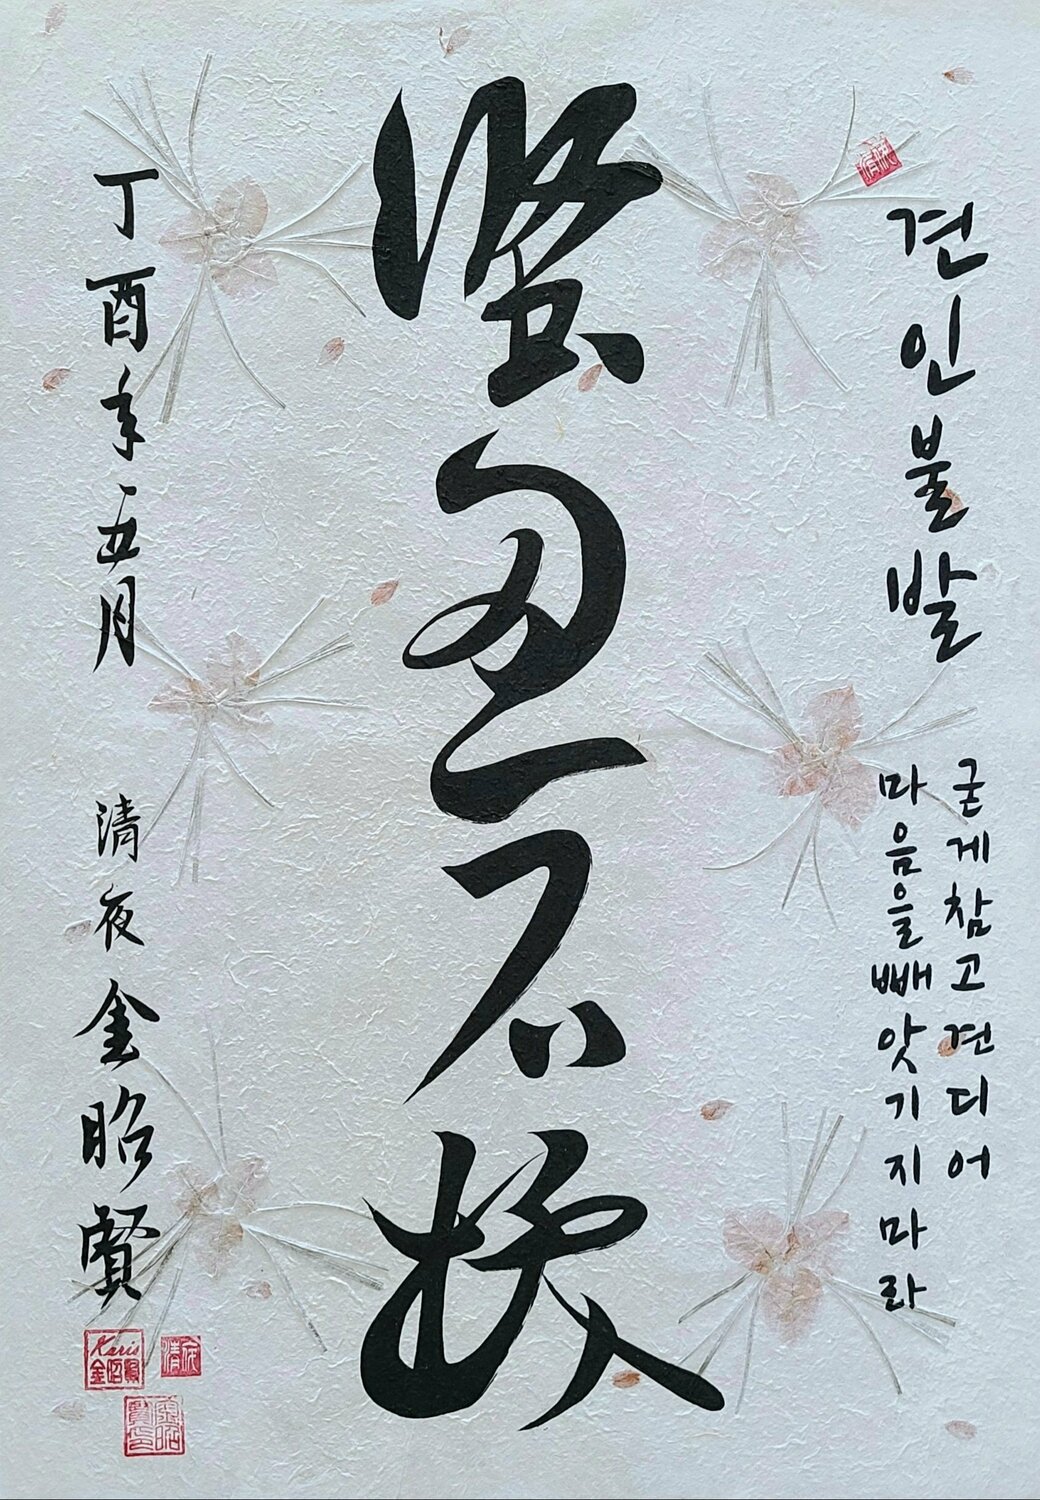 견인불발
굳게참고견디어
마음을빼앗기지마라
堅忍不拔
丁酉年五月
清夜金昭賢
Karis
金昭賢
清夜